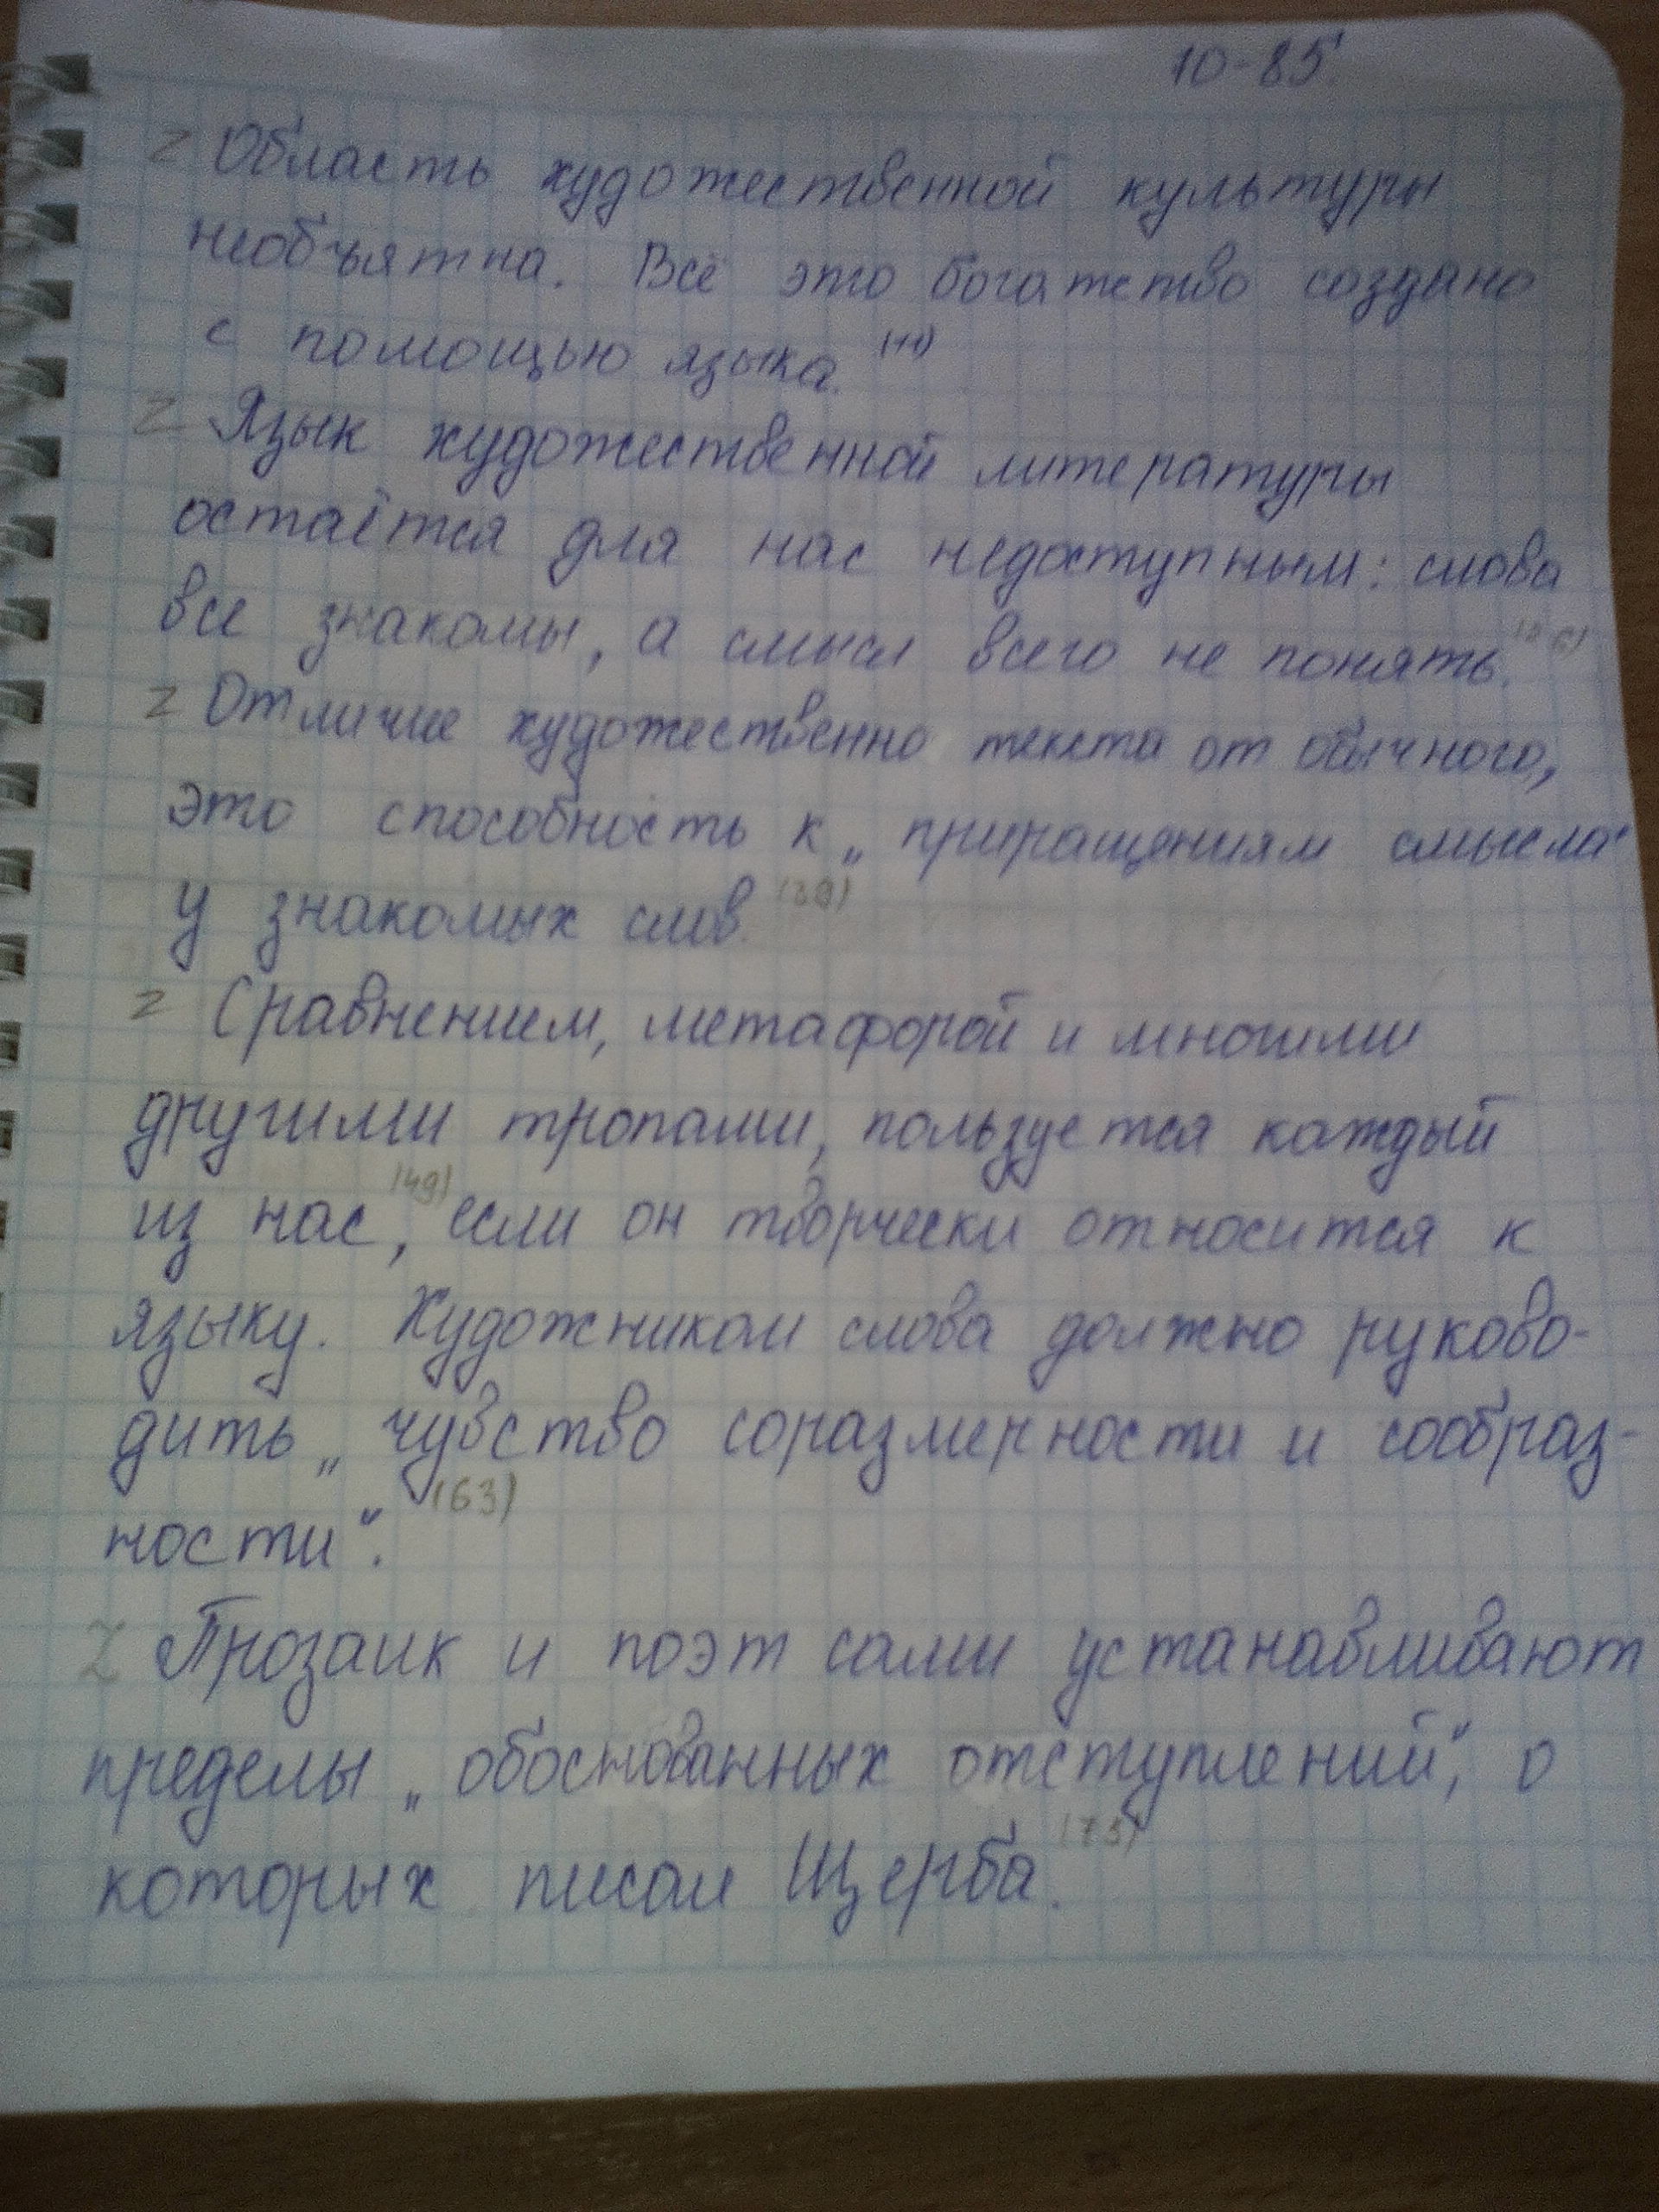 10-85.
z Область художественной культуры
необъятна. Всё это богатство создано
с помощью языка.
z Язык художественной литературы
остаётся для нас недоступным: слова
все знакомы, а смысл всего не понять.
z Отличие художественно текста от обычного,
это способность к „приращениям смысла“
у знакомых слов. (39)
z Сравнением, метафорой и многими
другими тропами, пользуется каждый
из нас, (49) если он творчески относится к
языку. Художником слова должно руково-
дить „чувство соразмерности и сообраз-
ности“. (63)
z Прозаик и поэт сами устанавливают
пределы „обоснованных отступлений“, о
которых писал Щерба. (73)